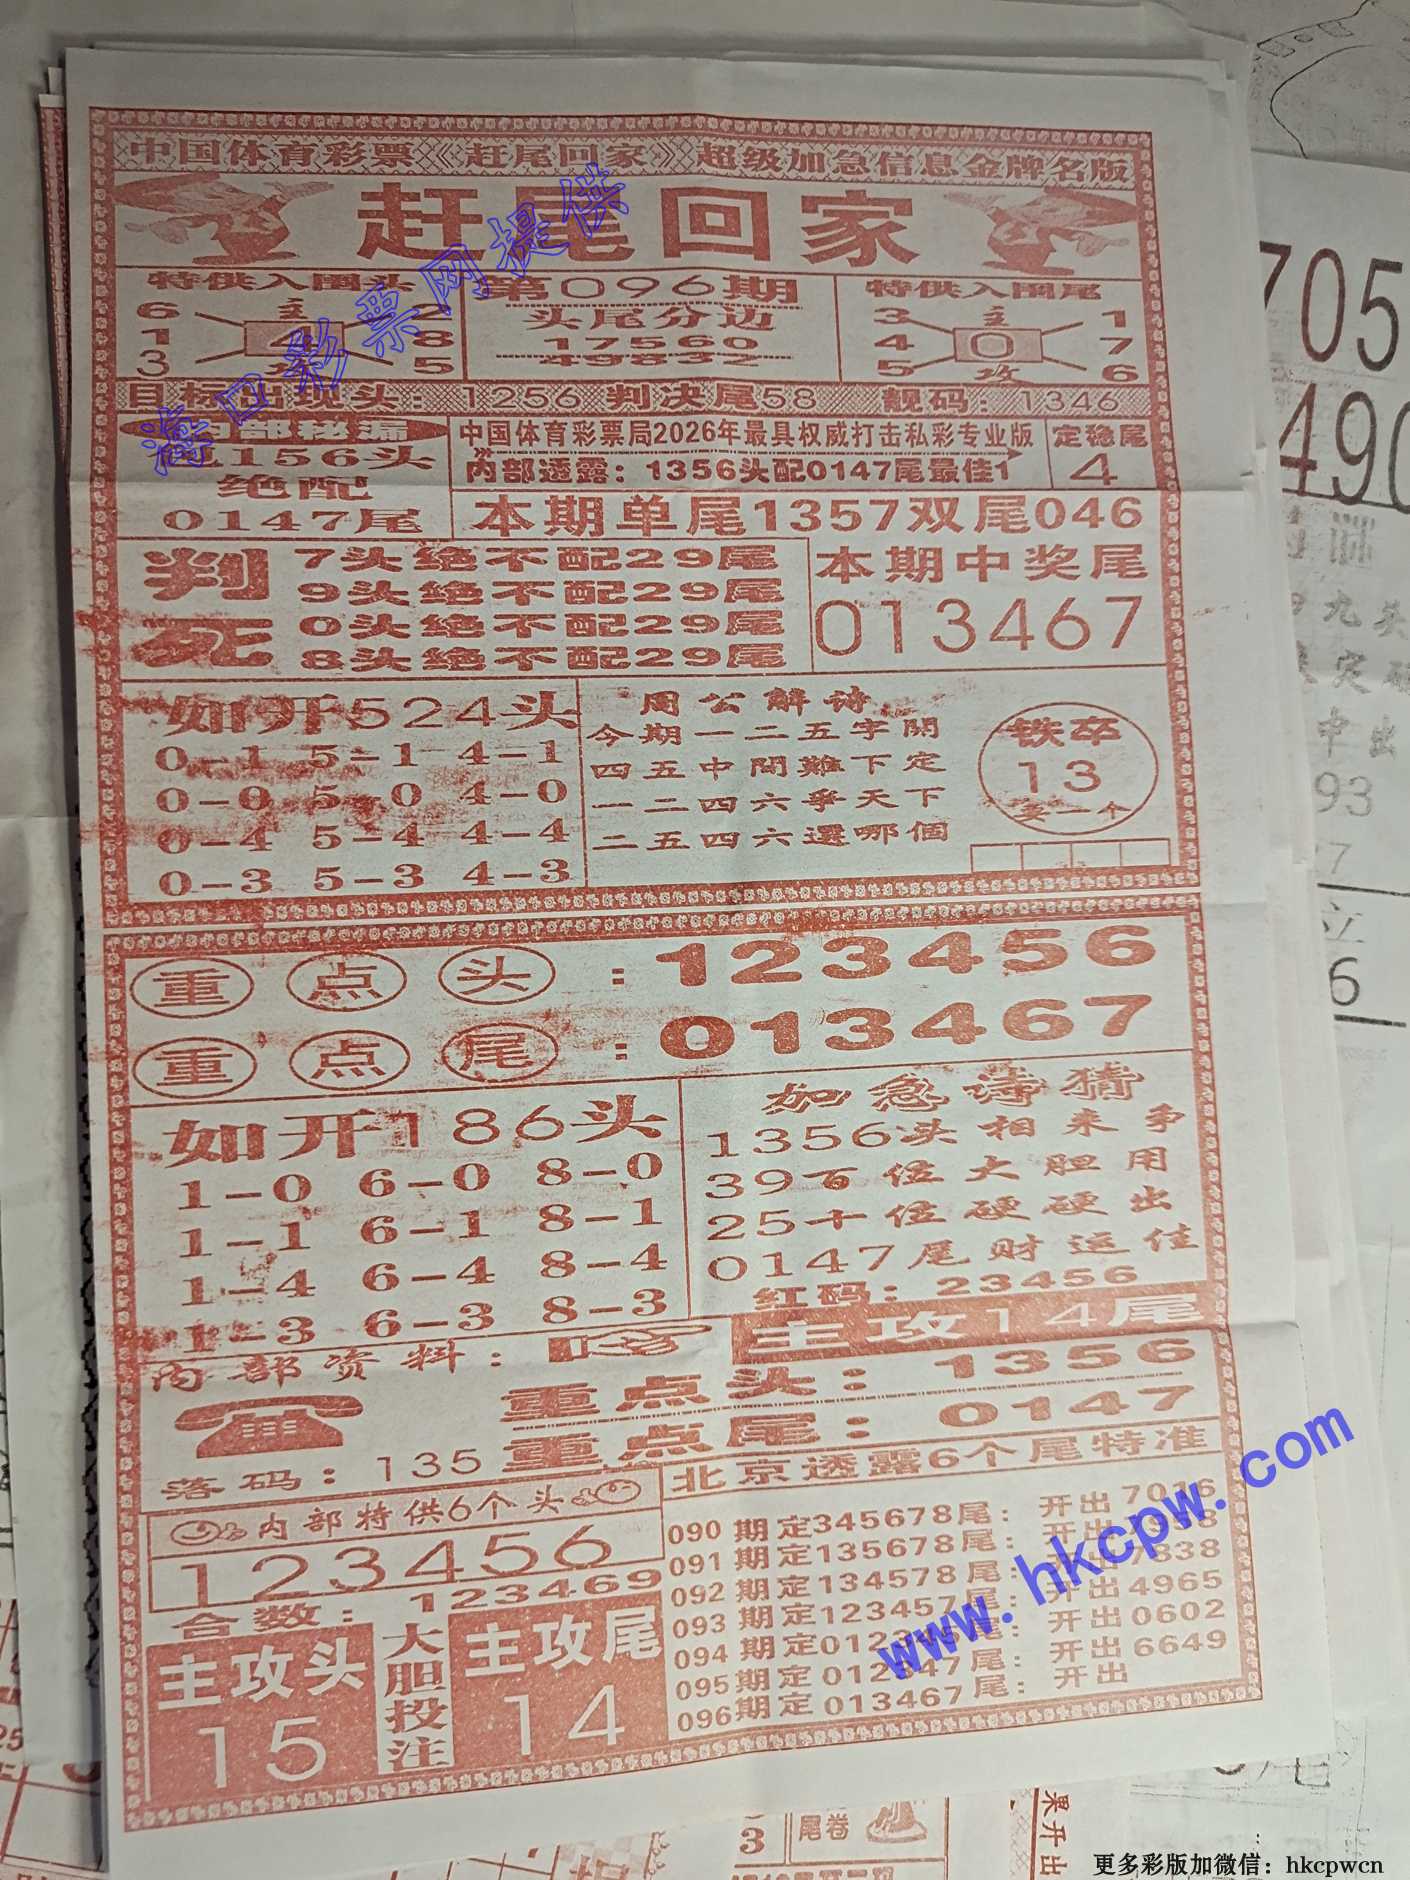 中国体育彩票《赶尾回家》超级加急信息金牌名版
赶尾回家
特供入围头
6 主 2
1 4 8
3 攻 5
第096期
头尾分边
17560
49832
特供入围尾
3 主 1
4 0 7
5 攻 6
目标出现头：1256 判决尾58 靓码：1346
内部秘漏
156头
绝配
0147尾
中国体育彩票局2026年最具权威打击私彩专业版
内部透露：1356头配0147尾最佳1
定稳尾
4
本期单尾1357双尾046
判死
7头绝不配29尾
9头绝不配29尾
0头绝不配29尾
8头绝不配29尾
本期中奖尾
013467
如开524头
0-1 5-1 4-1
0-0 5-0 4-0
0-4 5-4 4-4
0-3 5-3 4-3
周公解诗
今期一二五字開
四五中間難下定
一二四六爭天下
二五四六還哪個
铁卒
13
要一个
重点头：123456
重点尾：013467
如开186头
1-0 6-0 8-0
1-1 6-1 8-1
1-4 6-4 8-4
1-3 6-3 8-3
加急诗猜
1356头相来争
39百位大胆用
25十位硬硬出
0147尾财运佳
红码：23456
主攻14尾
内部资料：
重点头：1356
重点尾：0147
落码：135
内部特供6个头
123456
合数：123469
主攻头
15
大胆投注
主攻尾
14
北京透露6个尾特准
090期定345678尾：开出7016
091期定135678尾：开出
092期定134578尾：开出7838
093期定123457尾：开出4965
094期定012345尾：开出0602
095期定012347尾：开出6649
096期定013467尾：开出
海口彩票网提供
www.hkcpw.com
705
490
九头
中出
93
7
立
6
尾卷
3
果开出
更多彩版加微信：hkcpwcn